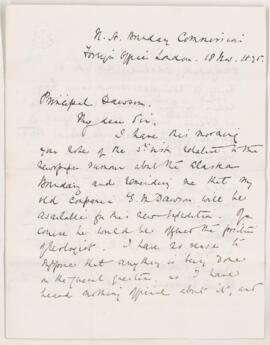 N. A. Boundary Commission
Foreign Office London. 18 Nov. 1875.
Principal Dawson.
My dear Sir,
I have this morning
your note of the 5th inst relative to the
newspaper rumour about the Alaskan
Boundary and reminding me that my
old Companion G. M. Dawson will be
available for this new expedition. Of
course he would be offered the position
of Geologist. I have no reason to
suppose that anything is being done
on the general question as I have
heard nothing official about it, and